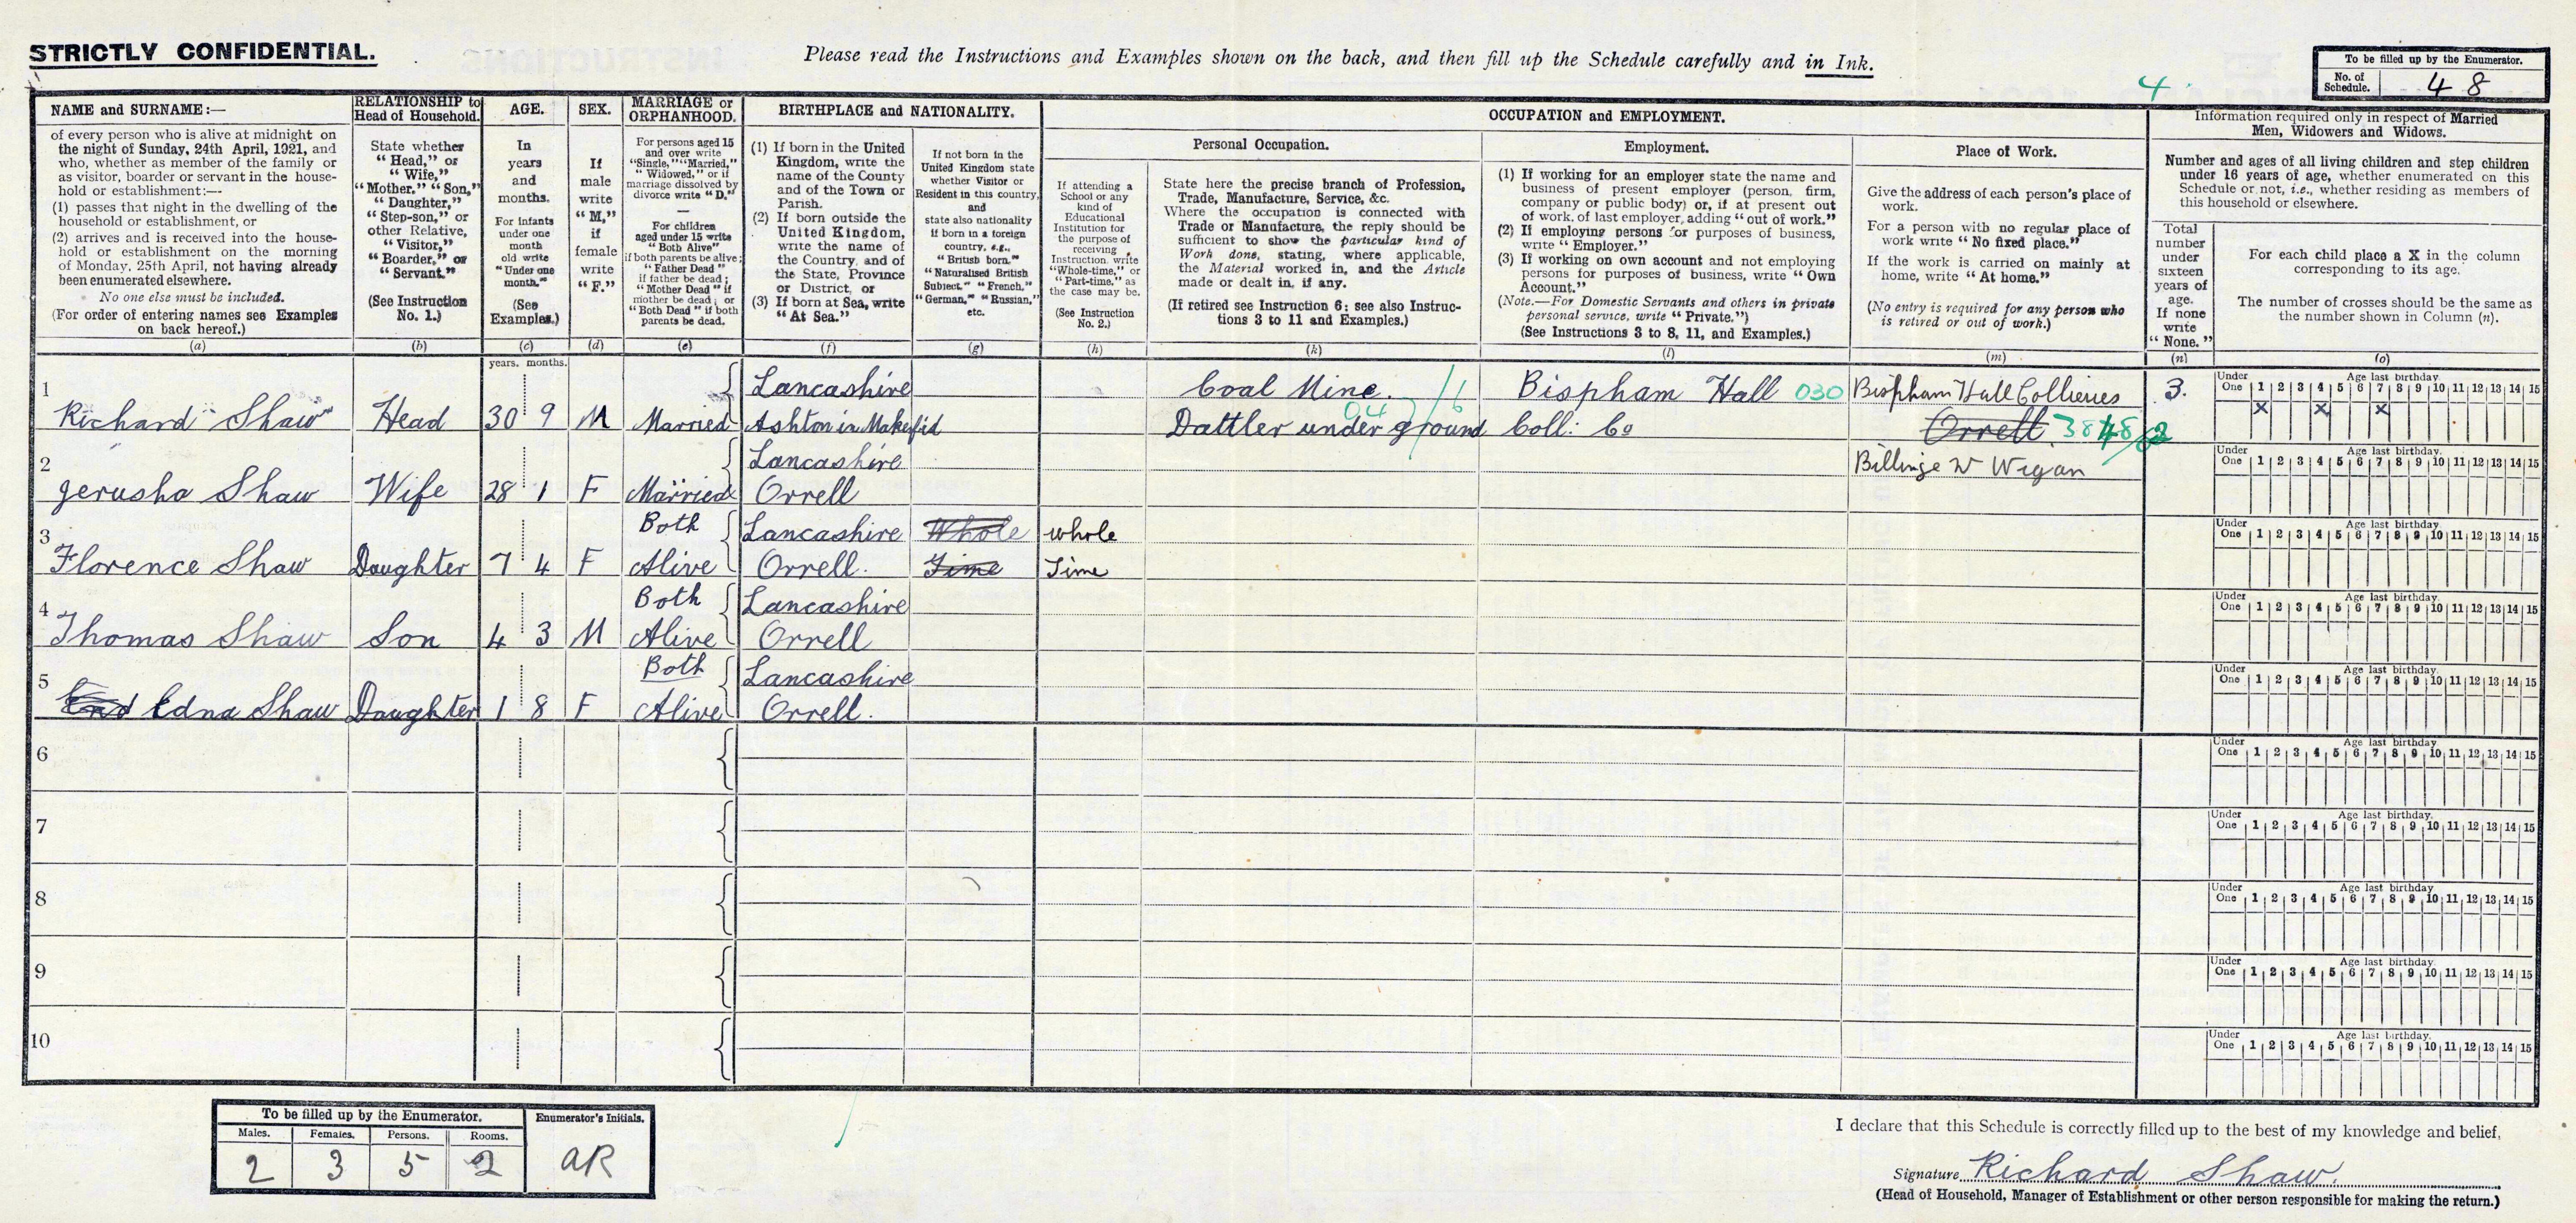 STRICTLY CONFIDENTIAL.
Please read the Instructions and Examples shown on the back, and then fill up the Schedule carefully and in Ink.
To be filled up by the Enumerator.
No. of Schedule. 48
4
NAME and SURNAME:—
of every person who is alive at midnight on
the night of Sunday, 24th April, 1921, and
who, whether as member of the family or
as visitor, boarder or servant in the house-
hold or establishment:—
(1) passes that night in the dwelling of the
household or establishment, or
(2) arrives and is received into the house-
hold or establishment on the morning
of Monday, 25th April, not having already
been enumerated elsewhere.
No one else must be included.
(For order of entering names see Examples
on back hereof.)
(a)
RELATIONSHIP to
Head of Household.
State whether
"Head," or
"Wife,"
"Mother," "Son,"
"Daughter,"
"Step-son," or
other Relative,
"Visitor,"
"Boarder," or
"Servant."
(See Instruction
No. 1.)
(b)
AGE.
In
years
and
months.
For infants
under one
month
old write
"Under one
month."
(See
Examples.)
(c)
years. months.
SEX.
If
male
write
"M,"
if
female
write
"F."
(d)
MARRIAGE or
ORPHANHOOD.
For persons aged 15
and over write
"Single," "Married,"
"Widowed," or if
marriage dissolved by
divorce write "D."
—
For children
aged under 15 write
"Both Alive"
if both parents be alive;
"Father Dead"
if father be dead;
"Mother Dead" if
mother be dead; or
"Both Dead" if both
parents be dead.
(e)
BIRTHPLACE and NATIONALITY.
(1) If born in the United
Kingdom, write the
name of the County
and of the Town or
Parish.
(2) If born outside the
United Kingdom,
write the name of
the Country, and of
the State, Province
or District, or
(3) If born at Sea, write
"At Sea."
(f)
If not born in the
United Kingdom state
whether Visitor or
Resident in this country,
and
state also nationality
if born in a foreign
country, e.g.,
"British born."
"Naturalised British
Subject." "French,"
"German," "Russian,"
etc.
(g)
OCCUPATION and EMPLOYMENT.
Personal Occupation.
If attending a
School or any
kind of
Educational
Institution for
the purpose of
receiving
Instruction, write
"Whole-time," or
"Part-time," as
the case may be.
(See Instruction
No. 2.)
(h)
State here the precise branch of Profession,
Trade, Manufacture, Service, &c.
Where the occupation is connected with
Trade or Manufacture, the reply should be
sufficient to show the particular kind of
Work done, stating, where applicable,
the Material worked in, and the Article
made or dealt in, if any.
(If retired see Instruction 6; see also Instruc-
tions 3 to 11 and Examples.)
(k)
Employment.
(1) If working for an employer state the name and
business of present employer (person, firm,
company or public body) or, if at present out
of work, of last employer, adding "out of work."
(2) If employing persons for purposes of business,
write "Employer."
(3) If working on own account and not employing
persons for purposes of business, write "Own
Account."
(Note.—For Domestic Servants and others in private
personal service, write "Private.")
(See Instructions 3 to 8, 11, and Examples.)
(l)
Place of Work.
Give the address of each person's place of
work.
For a person with no regular place of
work write "No fixed place."
If the work is carried on mainly at
home, write "At home."
(No entry is required for any person who
is retired or out of work.)
(m)
Information required only in respect of Married
Men, Widowers and Widows.
Number and ages of all living children and step children
under 16 years of age, whether enumerated on this
Schedule or not, i.e., whether residing as members of
this household or elsewhere.
Total
number
under
sixteen
years of
age.
If none
write
"None."
(n)
For each child place a X in the column
corresponding to its age.
The number of crosses should be the same as
the number shown in Column (n).
(o)
1
Lancashire Coal Mine. Bispham Hall 030 Bispham Hall Collieries 3.
Richard Shaw Head 30 9 M Married Ashton in Makefid Dattler under ground Coll: Co Orrell
Under One Age last birthday 1 2 3 4 5 6 7 8 9 10 11 12 13 14 15
X X X
2
Lancashire Billinge Nr Wigan
Jerusha Shaw Wife 28 1 F Married Orrell
Under One Age last birthday. 1 2 3 4 5 6 7 8 9 10 11 12 13 14 15
3
Both Lancashire Whole whole
Florence Shaw Daughter 7 4 F Alive Orrell. Time Time
Under One Age last birthday. 1 2 3 4 5 6 7 8 9 10 11 12 13 14 15
4
Both Lancashire
Thomas Shaw Son 4 3 M Alive Orrell
Under One Age last birthday. 1 2 3 4 5 6 7 8 9 10 11 12 13 14 15
5
Both Lancashire
Edna Shaw Daughter 1 8 F Alive Orrell.
Under One Age last birthday. 1 2 3 4 5 6 7 8 9 10 11 12 13 14 15
6
Under One Age last birthday 1 2 3 4 5 6 7 8 9 10 11 12 13 14 15
7
Under One Age last birthday. 1 2 3 4 5 6 7 8 9 10 11 12 13 14 15
8
Under One Age last birthday 1 2 3 4 5 6 7 8 9 10 11 12 13 14 15
9
Under One Age last birthday. 1 2 3 4 5 6 7 8 9 10 11 12 13 14 15
10
Under One Age last birthday. 1 2 3 4 5 6 7 8 9 10 11 12 13 14 15
To be filled up by the Enumerator.
Males. Females. Persons. Rooms.
2 3 5 2
Enumerator's Initials.
AR
I declare that this Schedule is correctly filled up to the best of my knowledge and belief,
Signature Richard Shaw.
(Head of Household, Manager of Establishment or other person responsible for making the return.)